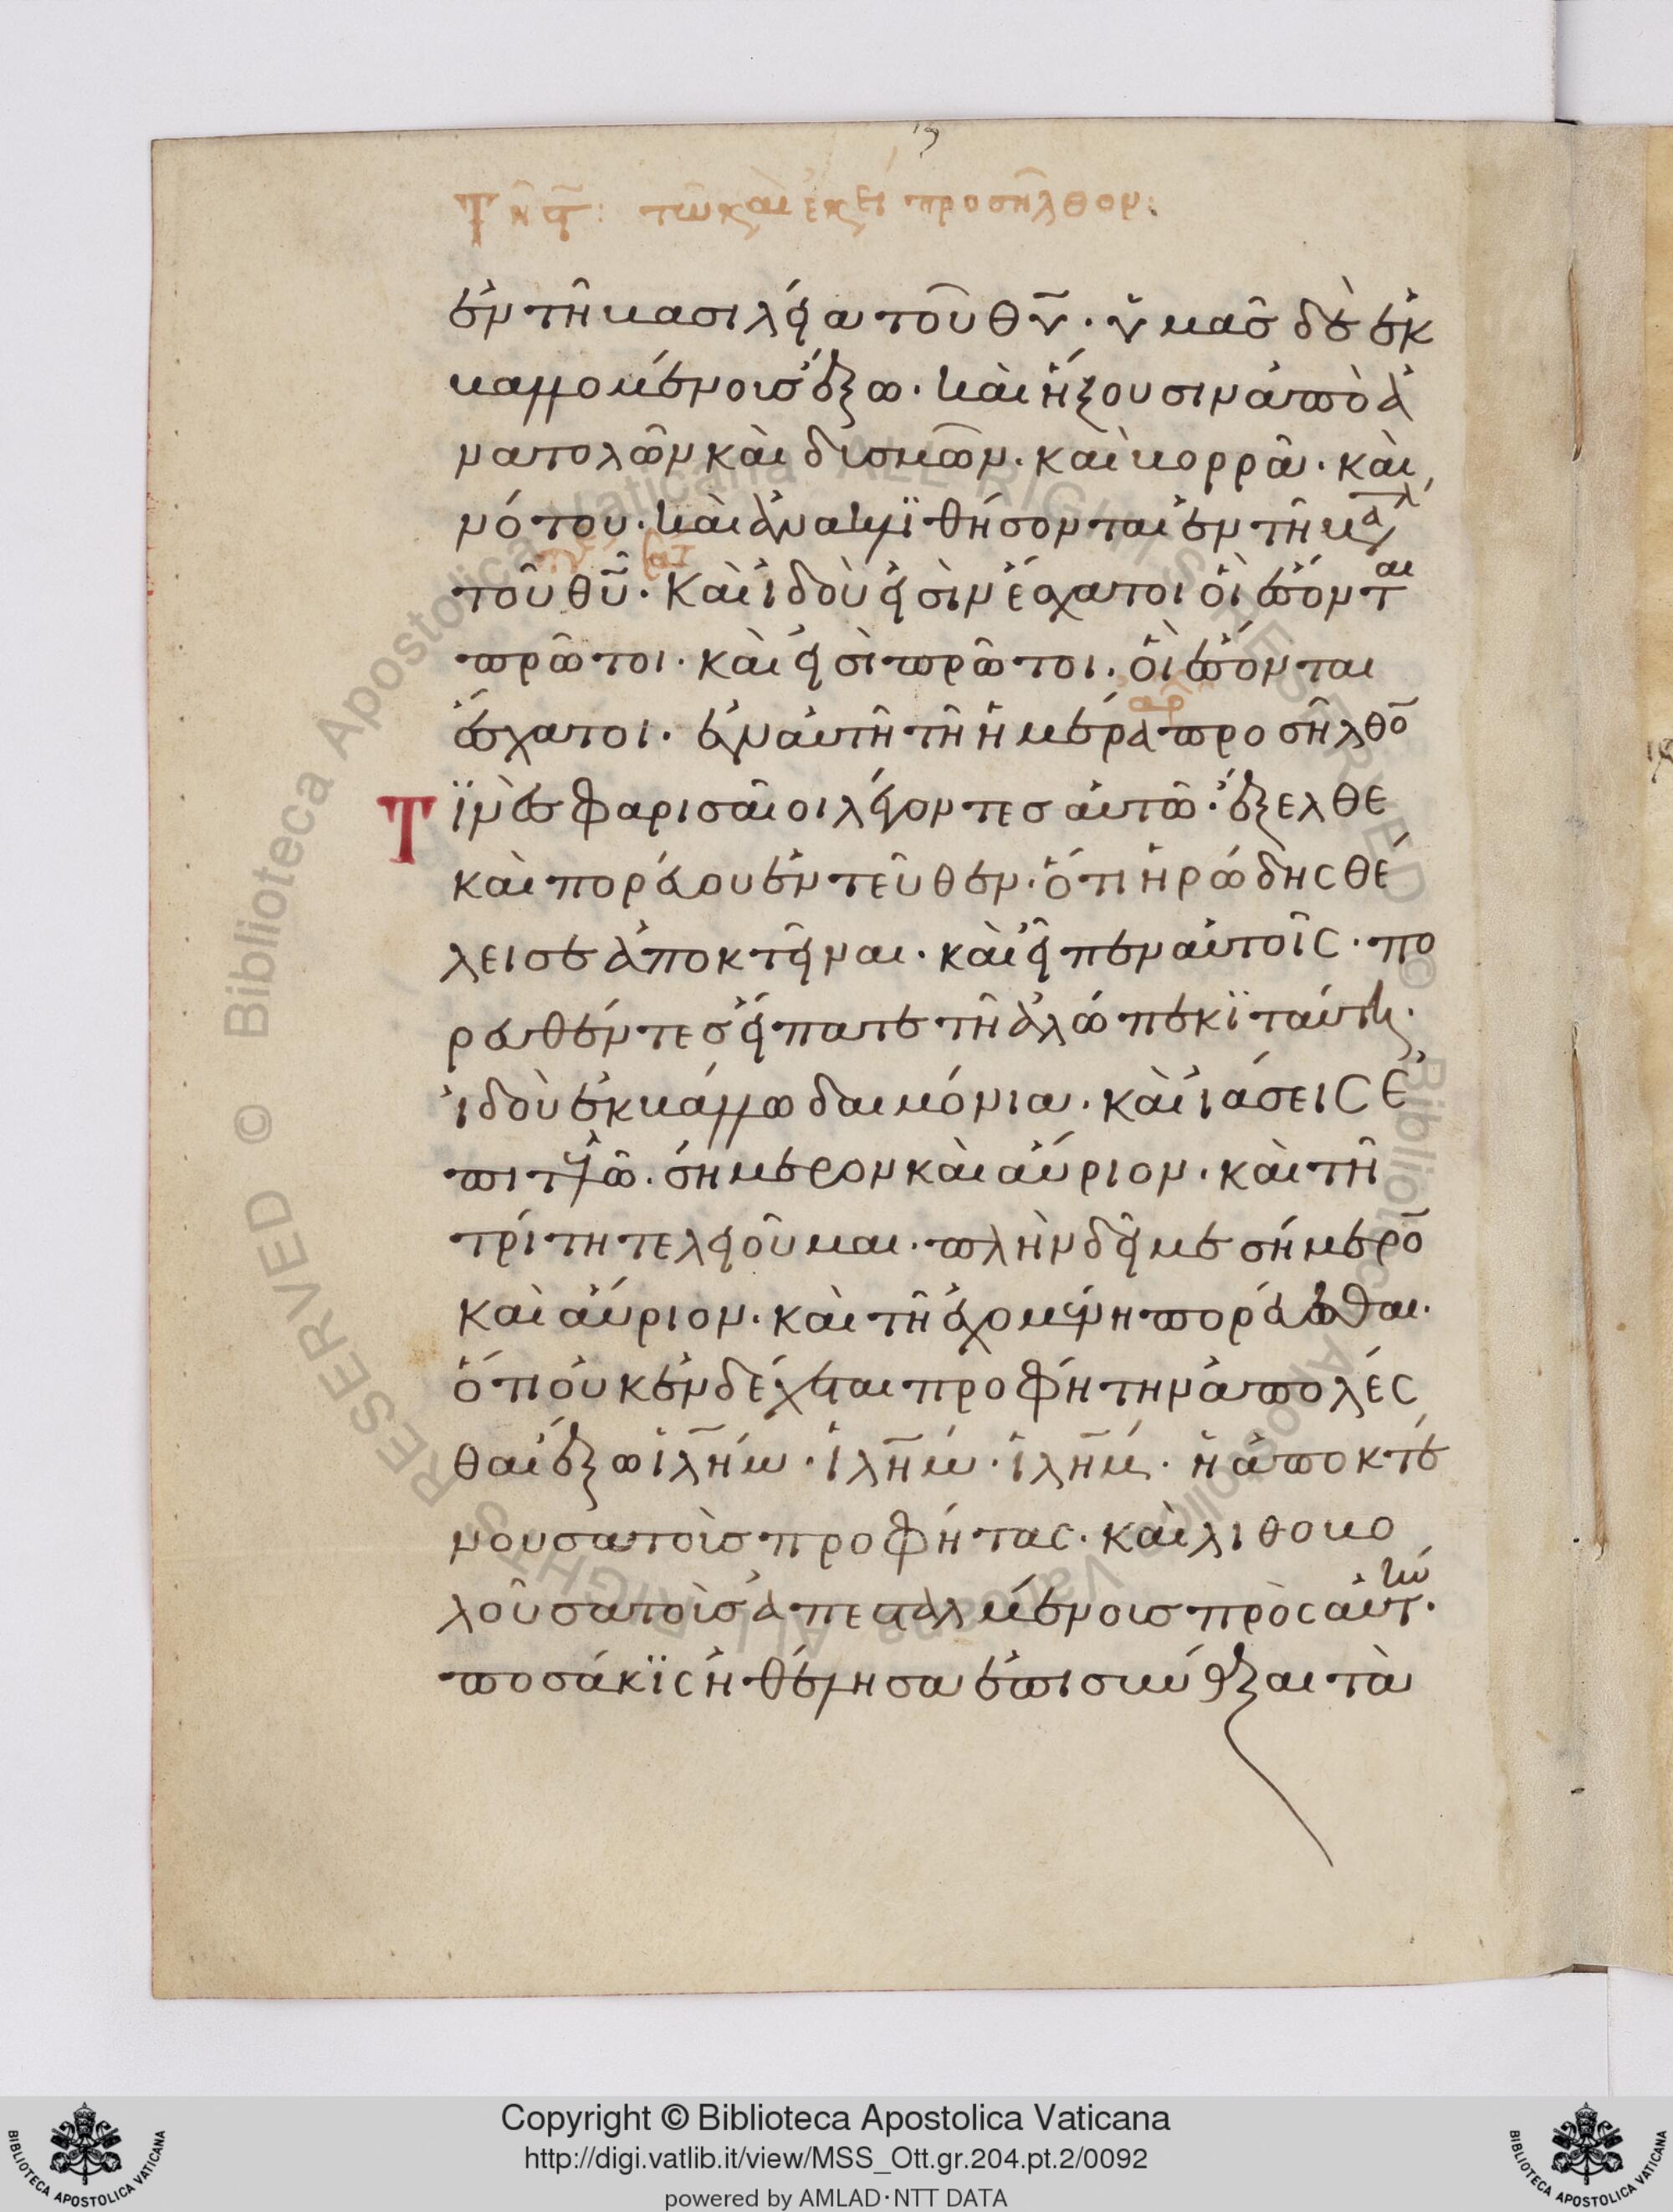 ἐν τῆ βασιλεία τοῦ θῦ· ὑμᾶσ δὲ ἐκ
βαλλομένοισ ἔξω· καὶ ἥξουσιν ἀπὸ ἀ
νατολῶν καὶ δισμῶν· καὶ βορρᾶ· καὶ
νότου· καὶ ἀνακλϊθήσονται ἐν τῆ βασλ
τοῦ θῦ· Καὶ ἰδοὺ εἰσὶν ἔσχατοι οἱ ἔσοντ
πρῶτοι· καὶ εἰσὶ πρῶτοι· οἱ ἔσονται
ἔσχατοι· ἐν αὐτῆ τῆ ἡμέρα προσῆλθο
Τϊνὲσ φαρισαῖοι λέγοντεσ αὐτῶ· ἔξελθε
καὶ πορεύου ἐντεῦθεν· ὅτι ἡρώδησ θέ
λει σε ἀποκτεῖναι· καὶ εἶπεν αὐτοῖσ· πο
ρευθέντεσ εἴπατε τῆ ἀλώπεκϊ ταύτη·
ἰδοὺ ἐκβάλλω δαιμόνια· καὶ ἰάσεισ ἐ
πιτελῶ· σήμερον καὶ αὔριον· καὶ τῆ
τρίτη τελειοῦμαι· πλὴν δεῖ με σήμερο
καὶ αὔριον· καὶ τῆ ἐχομένη πορεύεσθαι·
ὅτι οὐκ ἐνδέχεται προφήτην ἀπολέσ
θαι ἔξω ἱλήμ· ἱλήμ· ἱλήμ· ἡ ἀποκτέ
νουσα τοὺσ προφήτασ· καὶ λιθοβο
λοῦσα τοὺσ ἀπεσταλμένουσ πρὸσ αὐτήν·
ποσάκϊσ ἠθέλησα ἐπισυνάξαι τὰ
Copyright © Biblioteca Apostolica Vaticana
http://digi.vatlib.it/view/MSS_Ott.gr.204.pt.2/0092
powered by AMLAD·NTT DATA